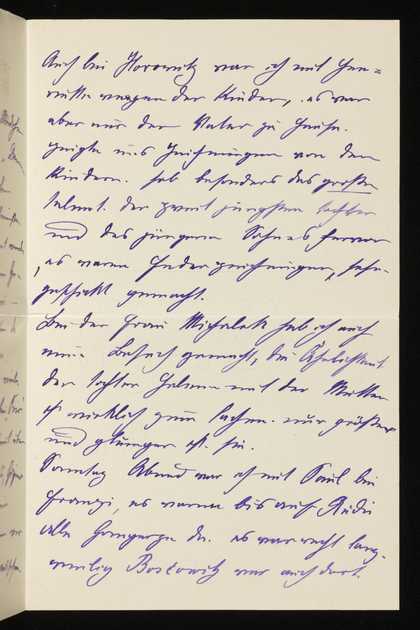 Auch bei Horowitz war ich mit Hen=
riette wegen der Kinder, es war
aber nur der Vater zu Hause.
zeigte uns Zeichnungen von den
Kindern. hob besonders das große
Talent der zweit jüngsten Tochter
und des jüngeren Sohnes hervor
, es waren Federzeichnungen, sehr
geschickt gemacht.
Bei der Frau Michalek hab ich auch
einen Besuch gemacht, die Ähnlichkeit
der Tochter Helene mit der Mutter
ist wirklich zum lachen. nur größer
und jünger ist sie.
Sonntag Abend war ich mit Paul bei
Franzi, es waren bis auf Rudi
alle Gomperze da. es war recht lang-
weilig war auch dort.